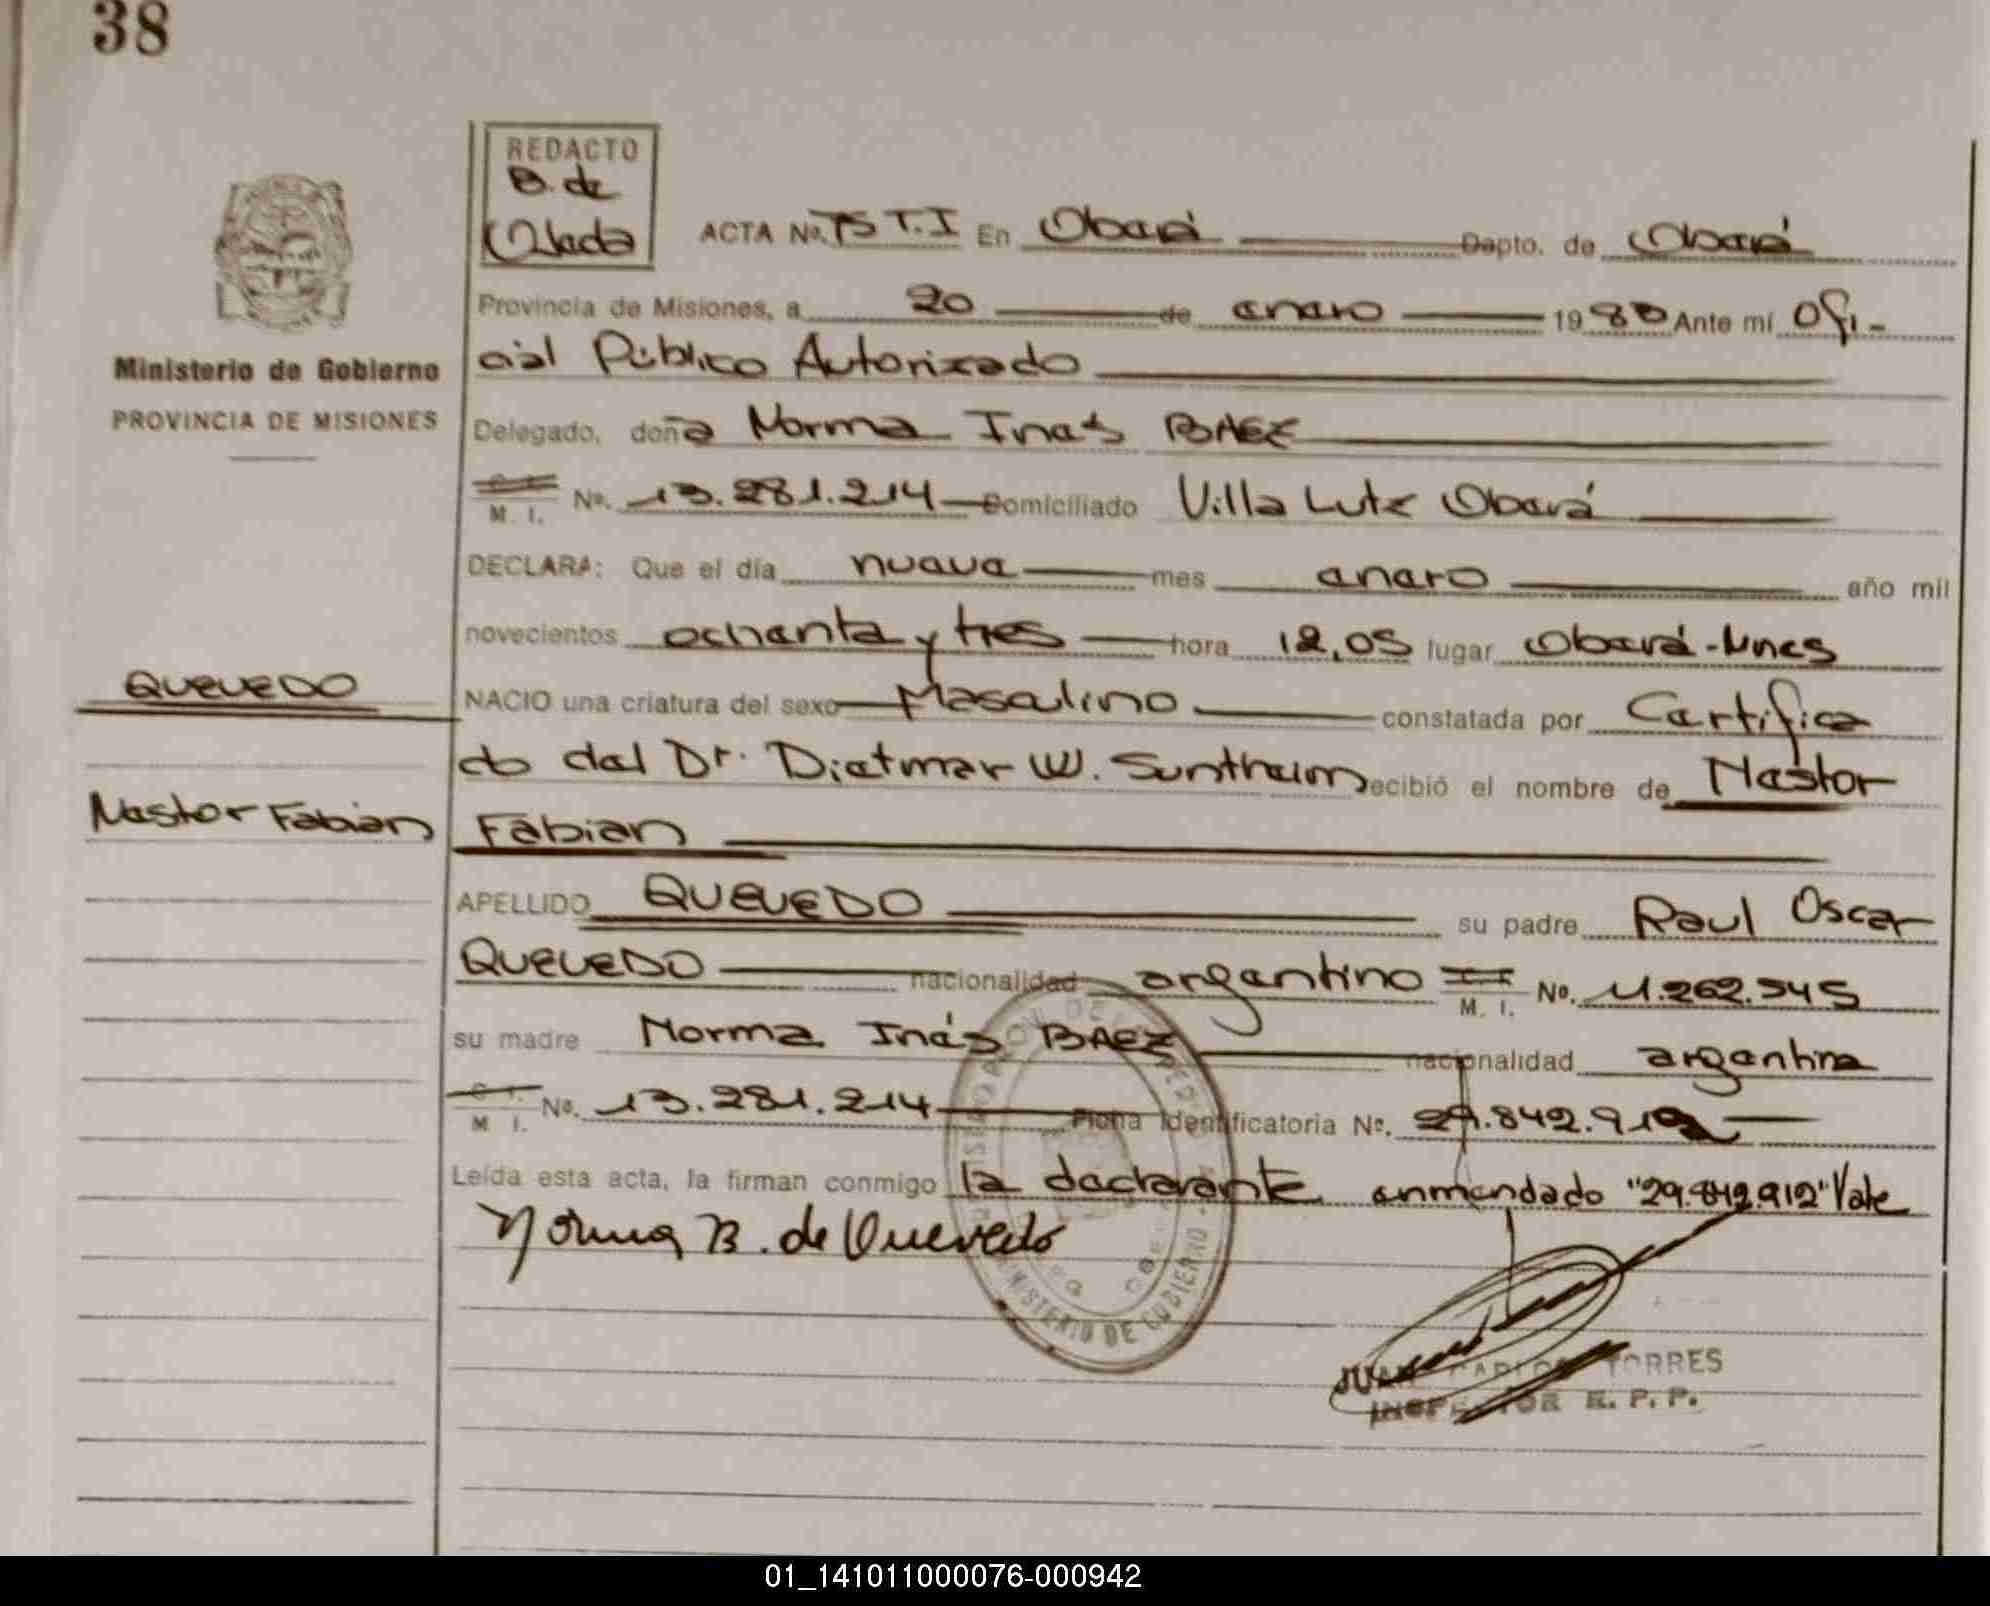 38
REDACTO
B. de
Olada
ACTA No. 75 T.I En Oberá Dapto. de Oberá
Provincia de Misiones, a 20 de enero 1983 Ante mí Ofi-
cial Público Autorizado
Ministerio de Gobierno
PROVINCIA DE MISIONES
Delegado, doña Norma Inés BAEZ
M. I. No. 13.281.214 Domiciliado Villa Lutz Oberá
DECLARA: Que el día nueve mes enero año mil
novecientos ochenta y tres hora 12,05 lugar Oberá-Mnes
QUEVEDO
NACIO una criatura del sexo Masculino constatada por Certifica
do del Dr. Dietmar W. Suntheim recibió el nombre de Nestor
Nestor Fabian
Fabian
APELLIDO QUEVEDO su padre Raul Oscar
QUEVEDO nacionalidad argentino M. I. No. 11.262.545
su madre Norma Inés BAEZ nacionalidad argentina
C. I. M I. No. 13.281.214 Ficha Identificatoria No. 29.842.912
Leída esta acta, la firman conmigo la declarante enmendado "29.842.912" Vale
Norma B. de Quevedo
MINISTERIO DE GOBIERNO
JUAN CARLOS TORRES
INSPECTOR R. P. P.
01_141011000076-000942